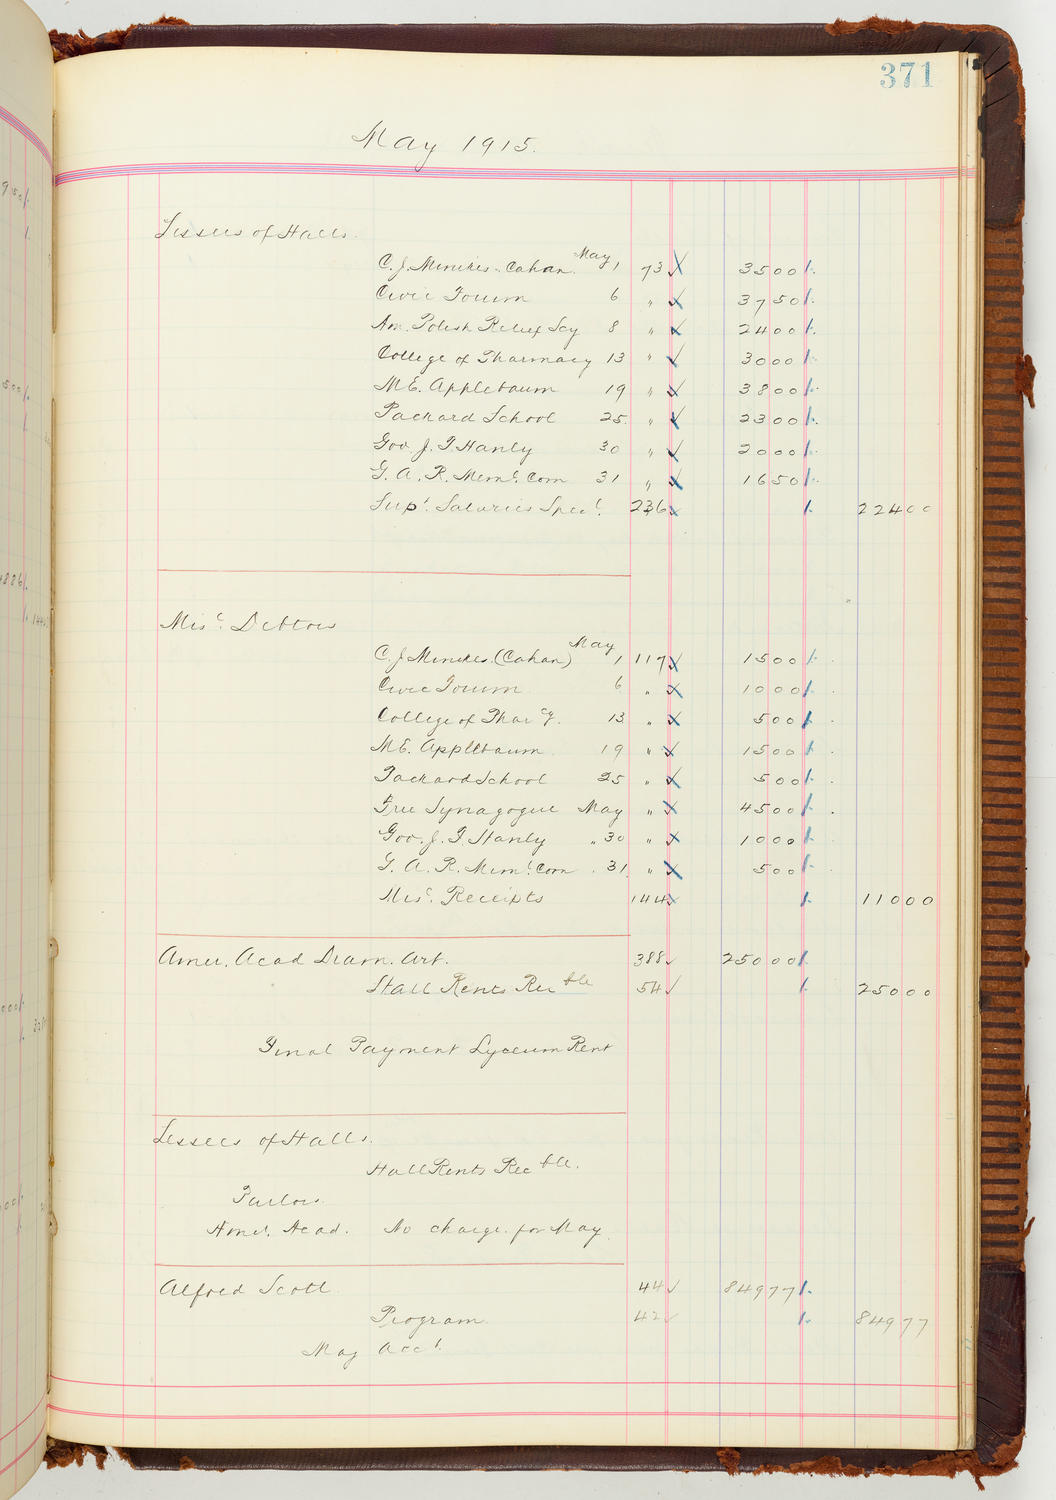 371
May 1915.
Lessees of Halls.
C. J. Minikes. Cahan. May 1 73 3500
Civic Forum 6 " 3750
Am. Polish Relief Scy 8 " 2400
College of Pharmacy 13 " 3000
M.E. Applebaum 19 " 3800
Packard School 25. " 2300
Gov. J. F. Hanly 30 " 2000
G. A. R. Meml. Com 31 " 1650
Supt. Salaries Specl. 236 22400
Misc. Debtors
C. J. Minikes. (Cahan) May 1 117 1500
Civic Forum 6 " 1000
College of Pharcy. 13 " 500
M.E. Applebaum 19 " 1500
Packard School 25 " 500
Free Synagogue May " 4500
Gov. J. F. Hanly " 30 " 1000
G. A. R. Meml. Com . 31 " 500
Misc. Receipts 144 11000
Amer. Acad Dram. Art. 388 25000
Hall Rents Recble 54 25000
Final Payment Lyceum Rent
Lessees of Halls.
Hall Rents Recble.
Parlors.
Amer. Acad. No charge for May.
Alfred Scott 44 84977
Program 42 84977
May Acct.